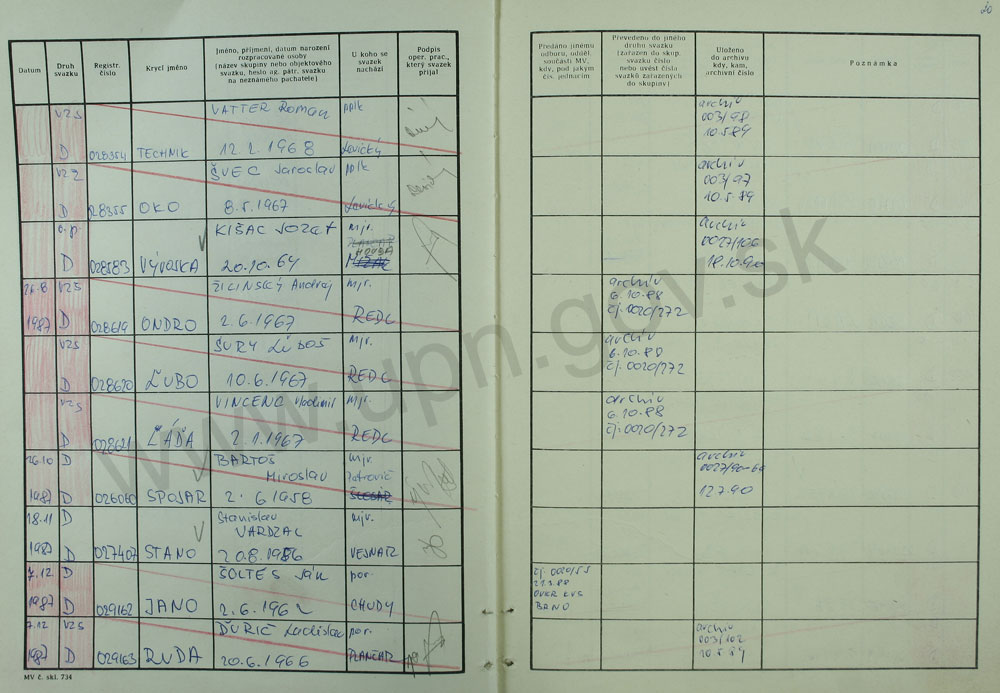 20
Datum
Druh svazku
Registr. číslo
Krycí jméno
Jméno, příjmení, datum narození
rozpracované osoby
(název skupiny nebo objektového
svazku, heslo ag. pátr. svazku
na neznámého pachatele)
U koho se
svazek
nachází
Podpis
oper. prac.,
který svazek
přijal
Předáno jinému
odboru, odděl.
součásti MV,
kdy, pod jakým
čís. jednacím
Převedeno do jiného
druhu svazku
(zařazen do skup.
svazku číslo
nebo uvést čísla
svazků zařazených
do skupiny)
Uloženo
do archivu
kdy, kam,
archivní číslo
Poznámka
VZS VATTER Roman pplk archiv
003/98
D 028354 TECHNIK 12. 2. 1968 Levický 10.5.89
ŠVEC Jaroslav pplk archiv
003/97
D 28355 OKO 8.5.1967 Levický 10.5.89
KIŠAC JOZEF mjr. archiv
HOUBA 0027/106
D 028583 VÝVOJKA 20.10.64 18.10.90
21.8 VZS ŽILINSKÝ Andrej mjr. archiv
6.10.88
1987 D 028619 ONDRO 2.6.1967 REDL čj. 0020/272
VZS ŠURY ĽUBOŠ mjr. archiv
6.10.88
D 028620 ĽUBO 10.6.1967 REDL čj. 0020/272
VZS VINCENC Vladimír mjr. archiv
6.10.88
D 028621 LÁĎA 2.1.1967 REDL čj. 0020/272
26.10 D BARTOŠ mjr. archiv
Miroslav Petrovič 0027/90-60
1987 D 026060 SPOJAR 2. 6 1958 12.7.90
18.11 D Stanislav mjr.
VARDZAL
1987 D 027407 STANO 20.8.1956 VEJNAR
7.12. D ŠOLTÉS JÁN por. čj. 0020/55
21.3.88
1987 D 029162 JANO 2.6.1962 CHUDY BRNO
7.12 VZS ĎURIČ Ladislav por. archiv
003/102
1987 D 029163 RUDA 20.6.1966 PLANČAR 10.5.89
MV č. skl. 734
www.upn.gov.sk